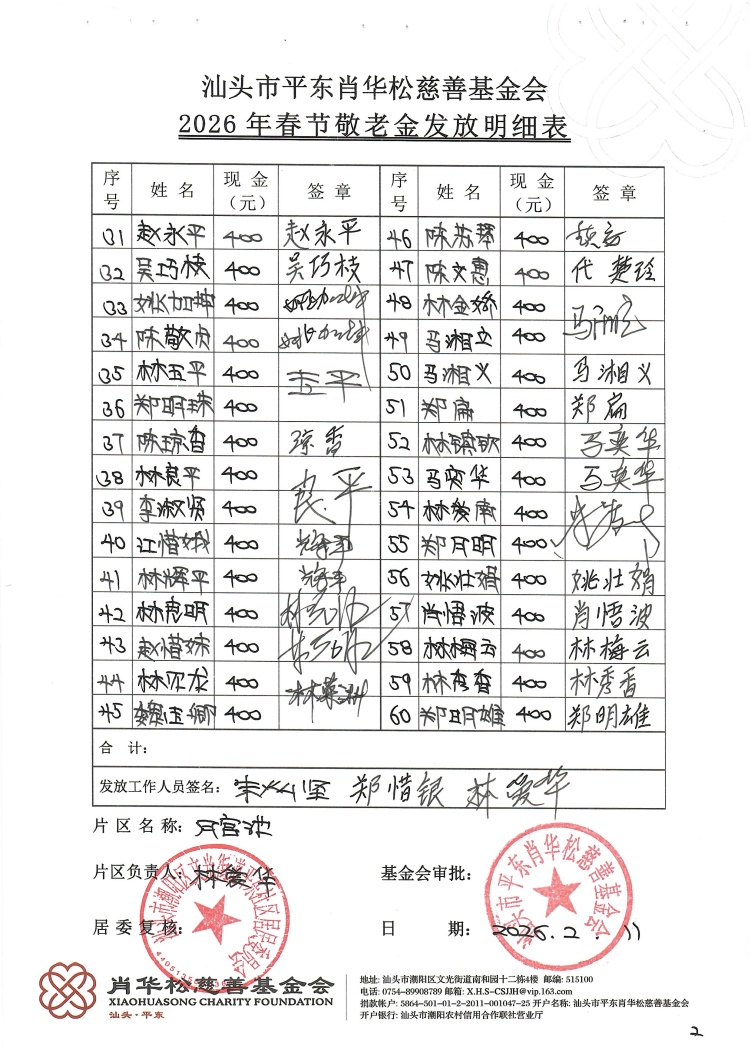 汕头市平东肖华松慈善基金会
2026年春节敬老金发放明细表
序号 姓名 现金（元） 签章 序号 姓名 现金（元） 签章
31 赵永平 400 赵永平 46 陈苏 400
32 吴巧枝 400 吴巧枝 47 陈文惠 400 代 楚玲
33 姚加坤 400 48 林金娇 400
34 陈敬贞 400 49 马湘立 400
35 林玉平 400 玉平 50 马湘义 400 马湘义
36 郑明珠 400 51 郑扁 400 郑扁
37 陈琼香 400 琼香 52 林镇歆 400 马英华
38 林良平 400 良平 53 马英华 400 马英华
39 李淑贤 400 54 林爱南 400
40 江惜娥 400 55 郑月明 400
41 林辉平 400 56 姚壮娟 400 姚壮娟
42 林克明 400 57 肖悟波 400 肖悟波
43 赵惜妹 400 58 林梅云 400 林梅云
44 林尔龙 400 59 林秀香 400 林秀香
45 玉卿 400 60 郑明雄 400 郑明雄
合 计：
发放工作人员签名： 郑惜银 林爱华
片区名称：月宫池
片区负责人：林爱华 基金会审批：
居委复核： 日 期：2026.2.11
汕头市平东肖华松慈善基金会
肖华松慈善基金会
XIAOHUASONG CHARITY FOUNDATION
汕头·平东
地址: 汕头市潮阳区文光街道南和园十二栋4楼 邮编: 515100
电话: 0754-89908789 邮箱: X.H.S-CSJJH@vip.163.com
捐款帐户: 5864-501-01-2-2011-001047-25 开户名称: 汕头市平东肖华松慈善基金会
开户银行: 汕头市潮阳农村信用合作联社营业厅
2